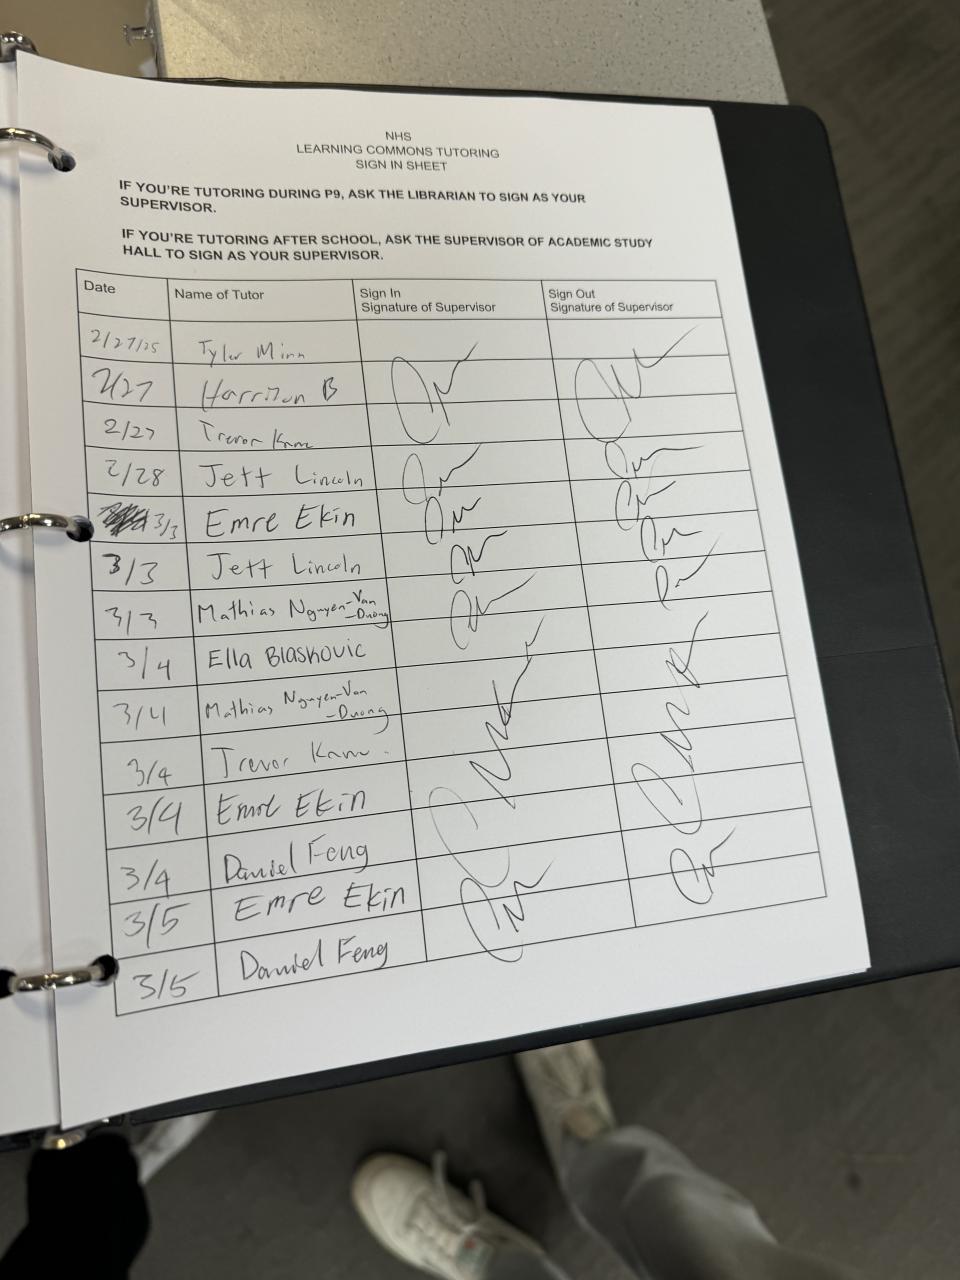 NHS
LEARNING COMMONS TUTORING
SIGN IN SHEET
IF YOU'RE TUTORING DURING P9, ASK THE LIBRARIAN TO SIGN AS YOUR
SUPERVISOR.
IF YOU'RE TUTORING AFTER SCHOOL, ASK THE SUPERVISOR OF ACADEMIC STUDY
HALL TO SIGN AS YOUR SUPERVISOR.
Date Name of Tutor Sign In Sign Out
Signature of Supervisor Signature of Supervisor
2/27/25 Tyler Minn
2/27 Harrison B
2/27 Trevor
2/28 Jett Lincoln
3/3 Emre Ekin
3/3 Jett Lincoln
3/3 Mathias Nguyen-Van
-Duong
3/4 Ella Blaskovic
3/4 Mathias Nguyen-Van
-Duong
3/4 Trevor
3/4 Emre Ekin
3/4 Daniel Feng
3/5 Emre Ekin
3/5 Daniel Feng